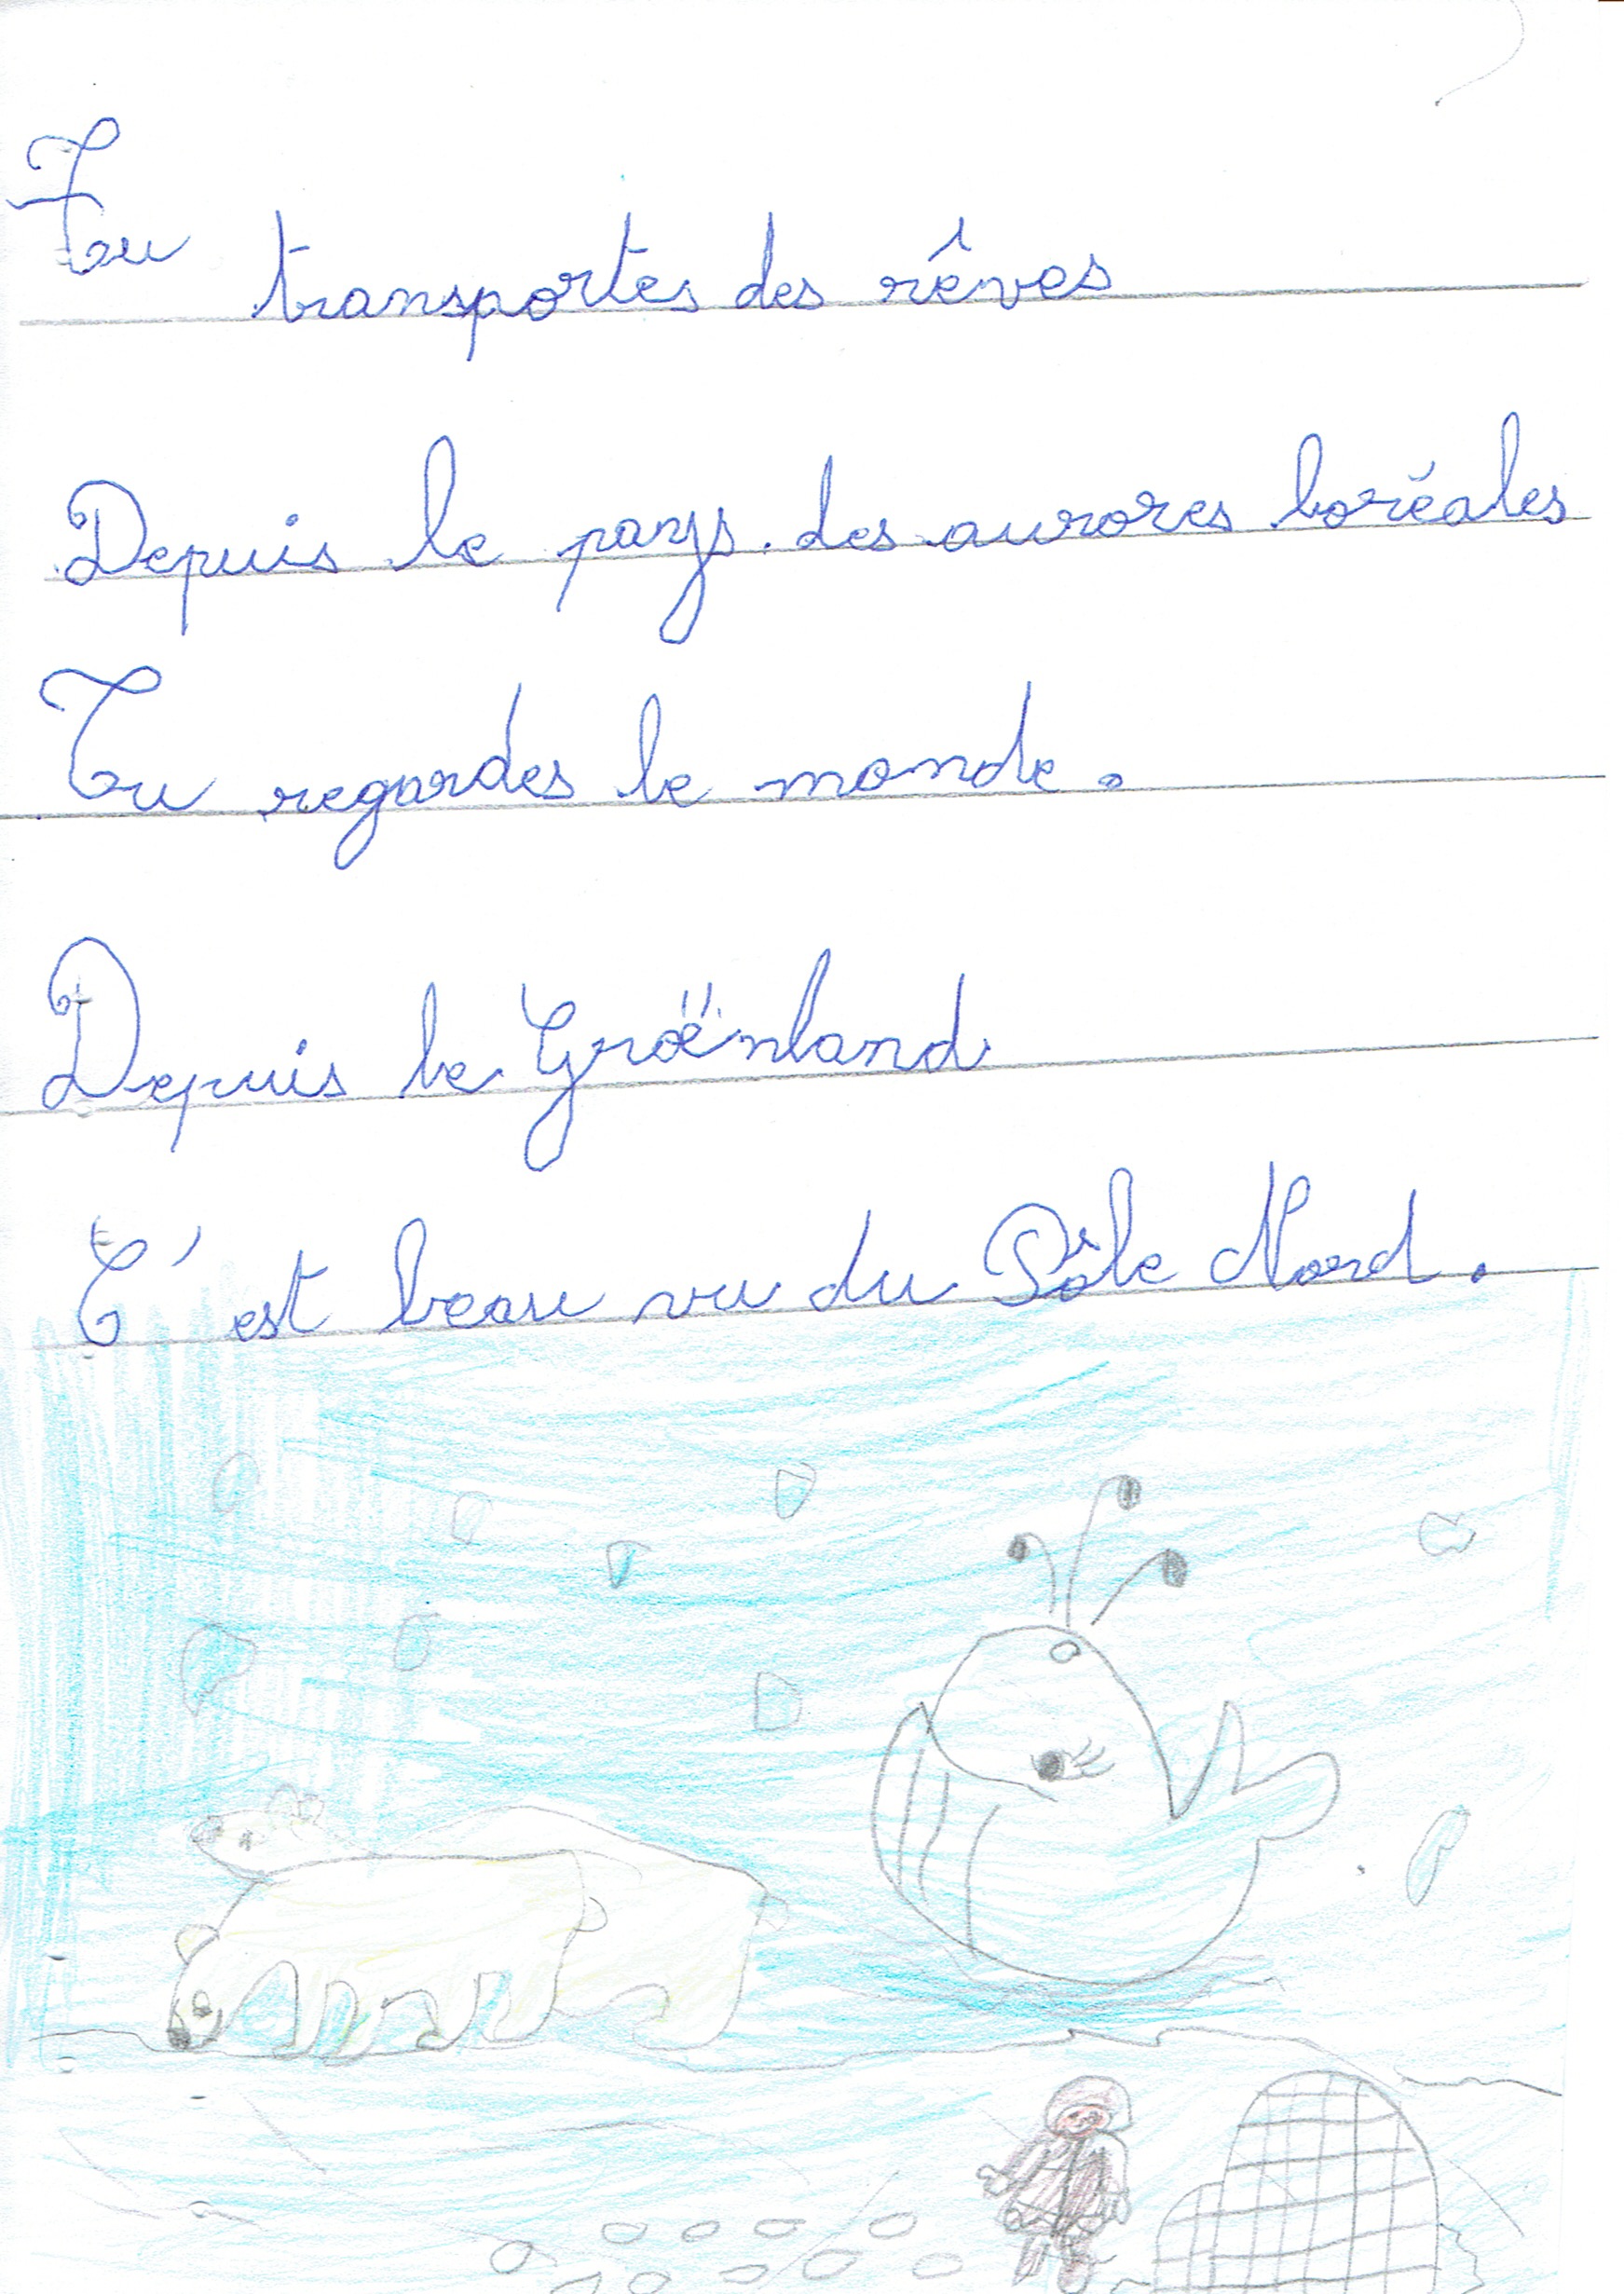 Tu transportes des rêves
Depuis le pays des aurores boréales
Tu regardes le monde.
Depuis le Groënland
C'est beau vu du Pôle Nord.